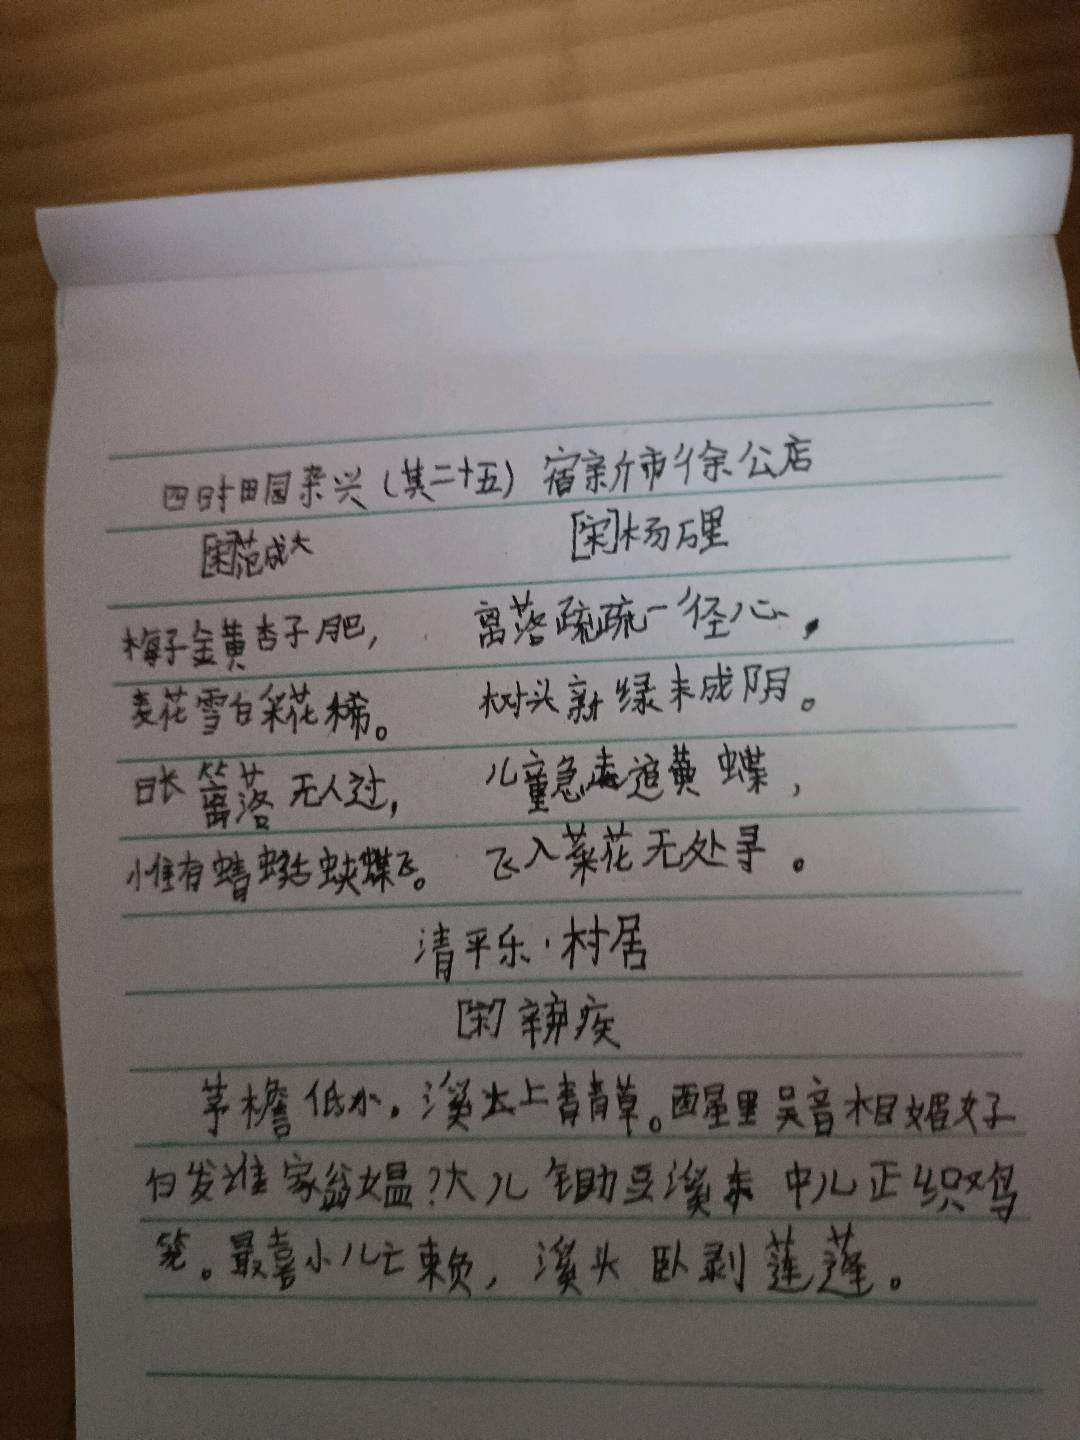 四时田园杂兴(其二十五) 宿新市徐公店
[宋]范成大 [宋]杨万里
梅子金黄杏子肥, 离落疏疏一径心,
麦花雪白菜花稀。 树头新绿未成阴。
日长篱落无人过, 儿童急走追黄蝶,
惟有蜻蜓蛱蝶飞。 飞入菜花无处寻。
清平乐·村居
[宋]辛弃疾
茅檐低小。溪上青青草。醉里吴音相媚好
白发谁家翁媪?大儿锄豆溪东 中儿正织鸡
笼。最喜小儿亡赖,溪头卧剥莲蓬。